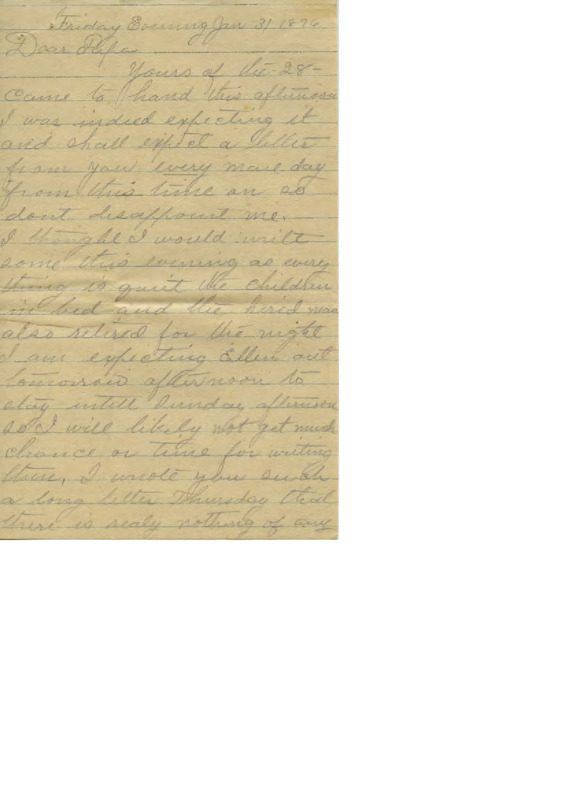 Friday Evening Jan 31 1896
Dear Papa
Yours of the 28-
came to hand this afternoon
I was indied expecting it
and shall expect a letter
from you every male day
from this time on so
dont disappoint me.
I thought I would write
some this evening as every
thing is quiet the children
in bed and the hired man
also retired for the night
I am expecting Ellen out
tomorrow afternoon to
stay intill Sunday afternoon
so I will likely not get much
chance or time for writing
then. I wrote you such
a long letter Thursday that
there is realy nothing of any